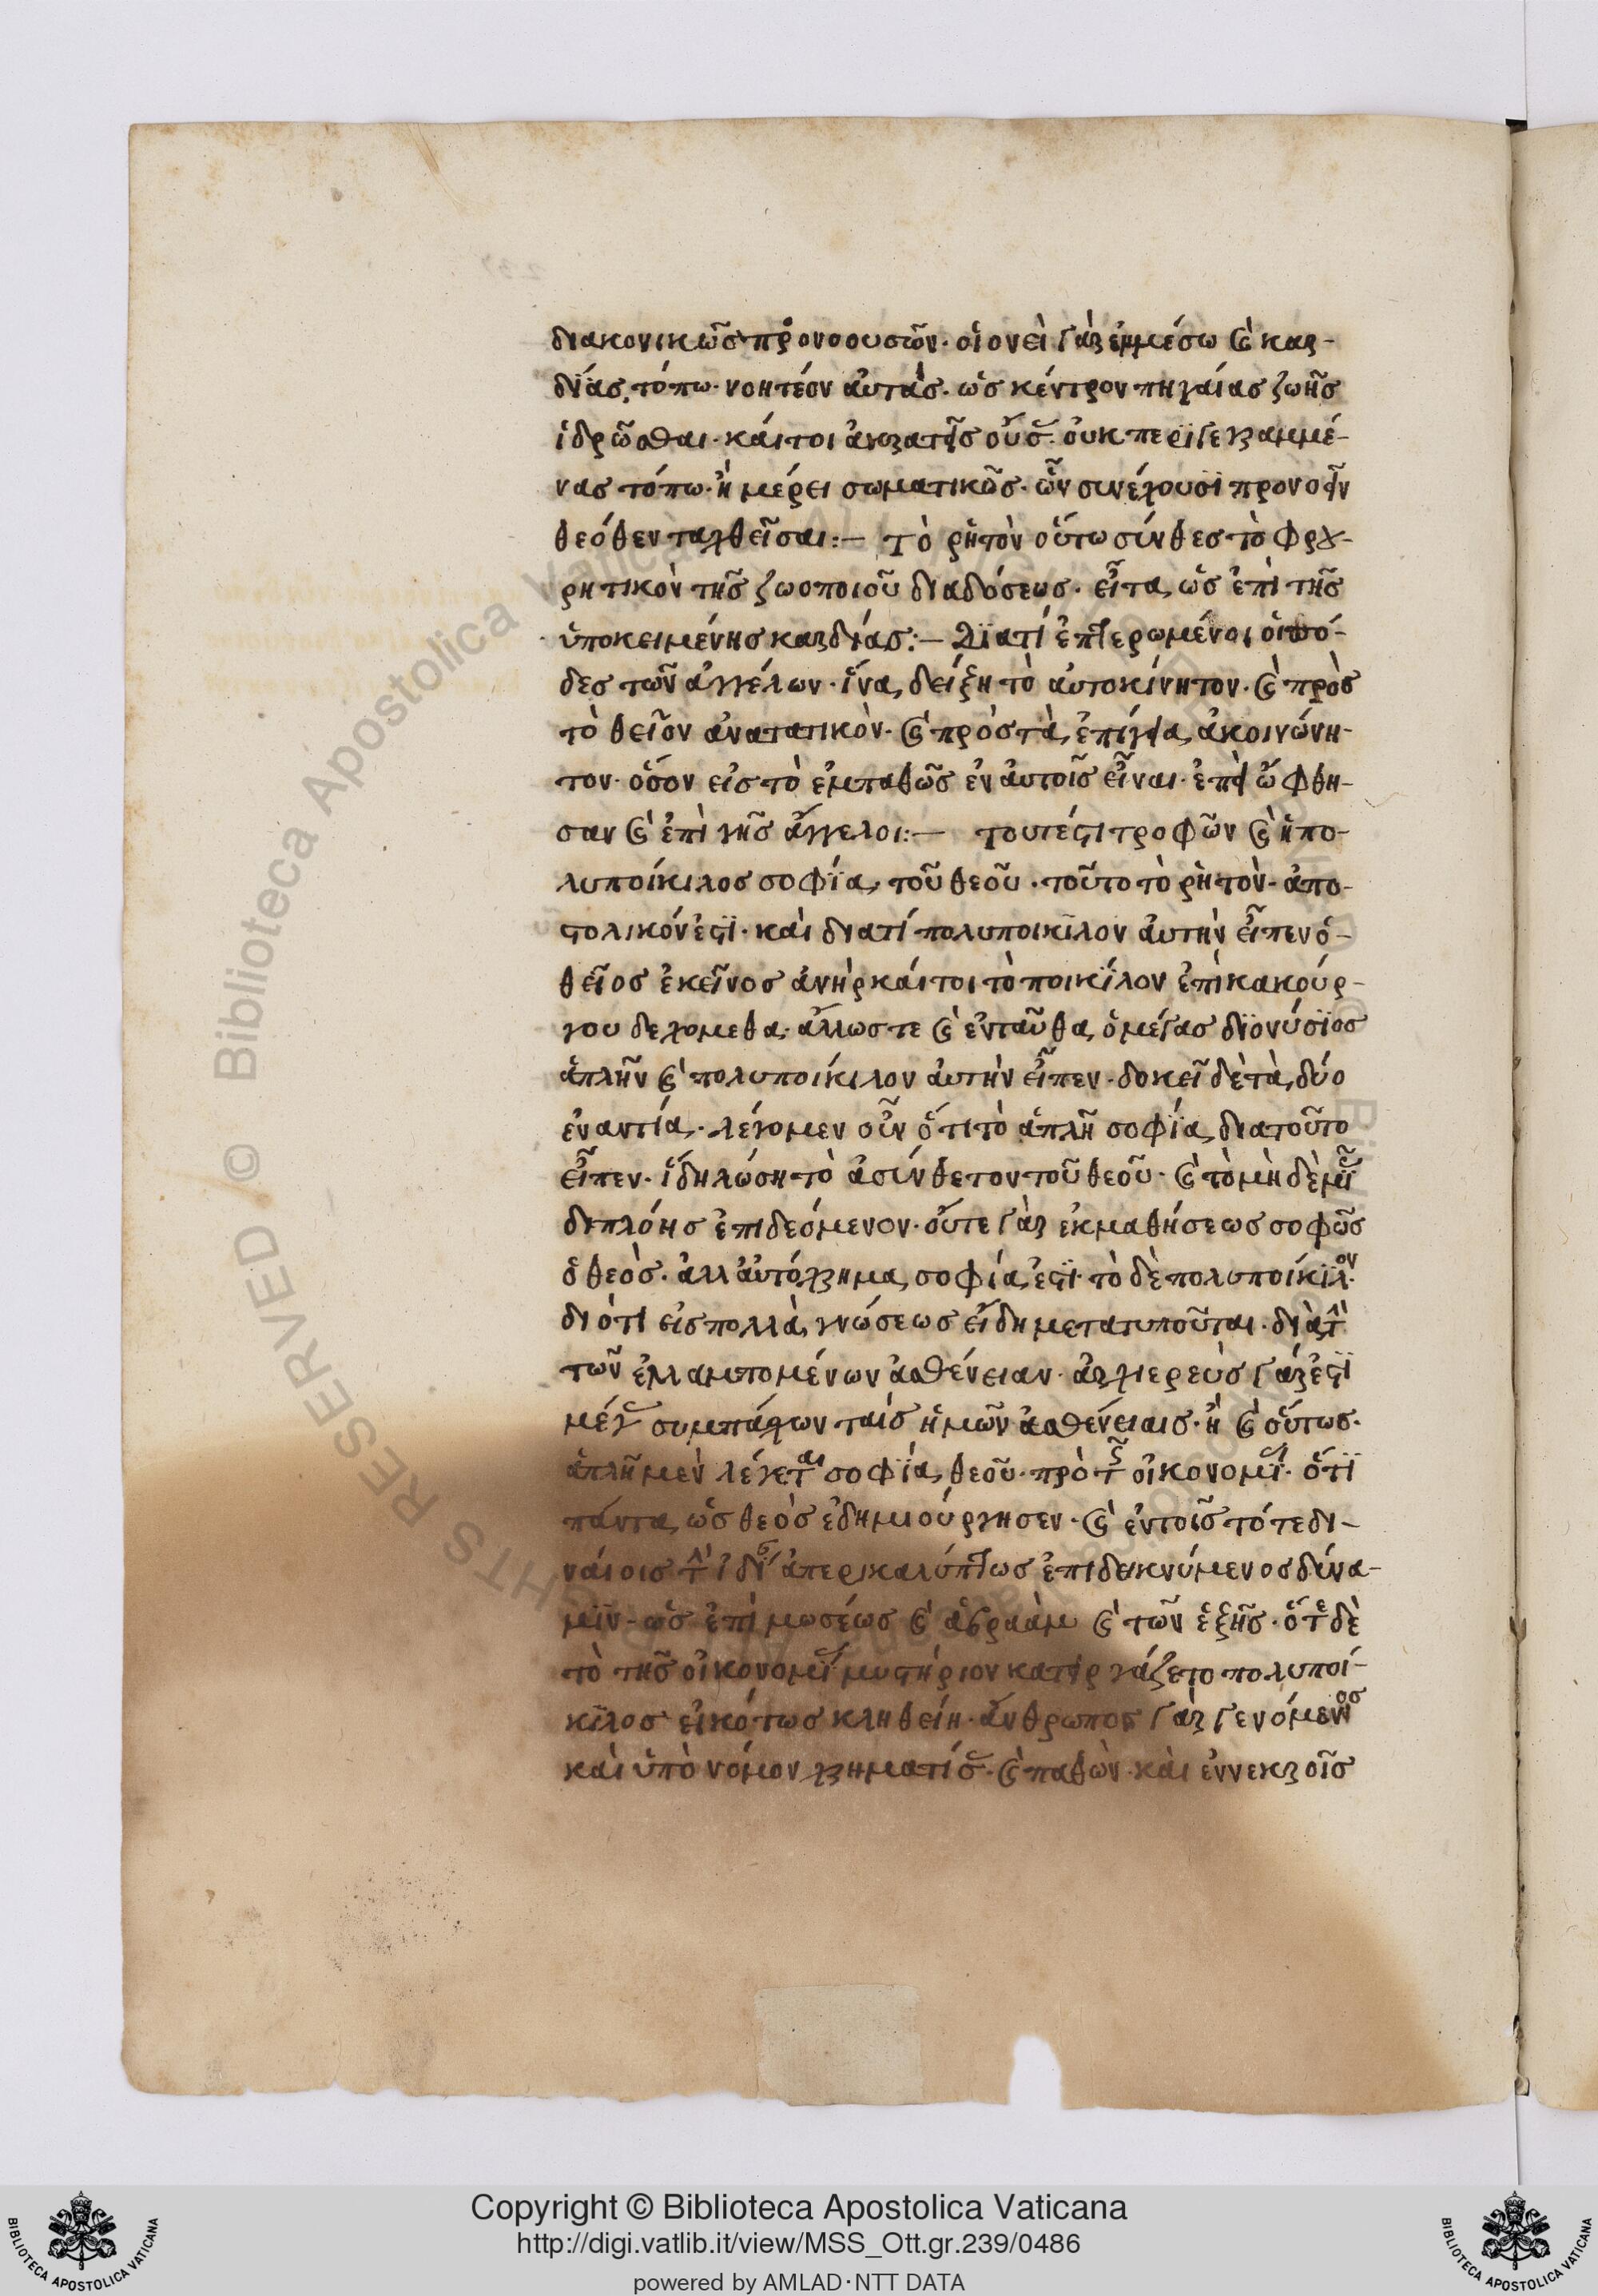 διακονικῶς προνοουσῶν· οἱονεὶ γὰρ ἐμμέσω καὶ καρ-
δίας, τόπω· νοητέον αὐτάς· ὡς κέντρον πηγαίας ζωῆς
ἱδρῶσθαι· κάιτοι ἀκρατεῖς οὔσ· ὀυκ περϊγεγραμμέ-
νας τόπω· ἢ μέρει σωματικῶς· ὧν συνέχουσϊ προνοεῖν
θεόθεν ταχθεῖσαι:— Τὸ ρητὸν οὕτω σύνθες τὸ φρου-
ρητικὸν τῆς ζωοποιοῦ διαδόσεως· εἶτα, ὡς ἐπὶ τῆς
ὑποκειμένης καρδίας:— Διατί ἐπτερωμένοι ὁι πό-
δες τῶν ἀγγέλων· ἵνα, δείξη τὸ αὐτοκίνητον· καὶ πρὸς
τὸ θεῖον ἀνατατικὸν· καὶ πρὸς τὰ, ἐπίγεια, ἀκοινώνη-
τον· ὅσον εἰς τὸ ἐμπαθῶς ἐν ἀυτοῖς εἶναι· ἐπεὶ ὤφθη-
σαν καὶ ἐπὶ γῆς ἄγγελοι:— τουτέστι τροφῶν καὶ ἡ πο-
λυποίκιλος σοφϊα, τοῦ θεοῦ· τοῦτο τὸ ρητὸν· ἀπο-
στολικόν ἐστϊ· καὶ διατί πολυποικϊλον ἀυτὴν εἶπεν ὁ-
θεῖος ἐκεῖνος ἀνὴρ κάιτοι τὸ ποικϊλον ἐπὶ κακούρ-
γου δεχομεθα· ἄλλωστε καὶ ἐνταῦθα, ὁ μέγας διονύσϊος
ἁπλῆν καὶ πολυποίκιλον ἀυτὴν εἶπεν· δοκεῖ δὲ τὰ, δύο
ἐναντία· λέγομεν οὖν ὅτι τὸ ἁπλῆ σοφϊα, διατοῦτο
εἶπεν· ἵ δηλώση τὸ ἀσύνθετον τοῦ θεοῦ· καὶ τὸ μὴ δὲ μϊ
διπλόης ἐπιδεόμενον· οὔτε γὰρ ἐκ μαθήσεως σοφῶς
ὁ θεὸς· ἀλλ ἀυτόχρημα, σοφία, ἐστϊ· τὸ δὲ πολυποίκϊλον·
διότι εἰς πολλὰ, γνώσεως εἴδη μετατυποῦται· διὰ τὴν
τῶν ἐλλαμπομένων ἀσθένειαν· ἀρχιερεὺς γάρ ἐστϊ
μέγ συμπάσχων ταῖς ἡμῶν ἀσθένειαις· ἢ καὶ οὕτως·
ἁπλῆ μὲν λέγεται σοφϊα, θεοῦ· πρὸ τῆς οἰκονομϊ· ὅτϊ
πάντα, ὡς θεὸς ἐδημιούργησεν· καὶ ἐν τοῖς τότε δι-
καίοις τὴν ἰδί ἀπερικαλύπτως ἐπιδεικνύμενος δύνα-
μϊν· ὡς ἐπὶ μωσέως καὶ ἀβραὰμ καὶ τῶν ἑξῆς· ὅτε δὲ
τὸ τῆς οἰκονομϊ μυστήριον κατειργάζετο πολυποί-
κϊλος εἰκότως κληθείη· ἄνθρωπος γὰρ γενόμενος
καὶ ὑπὸ νόμον χρηματίσ· καὶ παθὼν· καὶ ἐν νεκροῖς
Copyright © Biblioteca Apostolica Vaticana
http://digi.vatlib.it/view/MSS_Ott.gr.239/0486
powered by AMLAD·NTT DATA